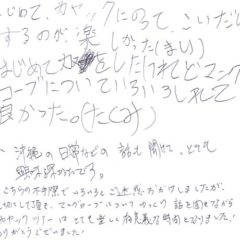 はじめて、カヤックにのって、こいだり
するのが楽しかった(まい)
はじめてカヌーをしたけれどマング
ローブについていろいろしれて
良かった。(たくみ)
沖縄の日常などの話も聞けて、とても
興味深かったです。
こちらの不手際でいろいろとご迷惑おかけしましたが、
大切にして頂き、マングローブについてゆっくり話を聞きながら
カヤックツアーはとても楽しく有意義な時間となりました!
ありがとうございました!